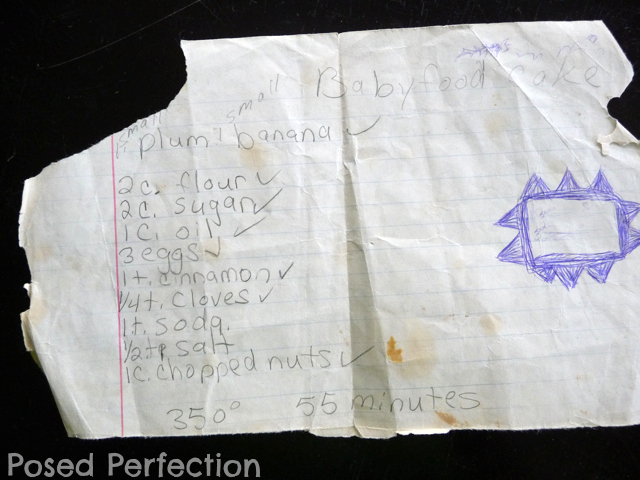 Babyfood Cake
small small
1 plum 1 banana ✓
2c. flour ✓
2c. sugar ✓
1C. oil ✓
3 eggs ✓
1t. cinnamon ✓
1/4t. cloves ✓
1t. soda.
1/2tp. salt
1c. chopped nuts ✓
350° 55 minutes
Posed Perfection